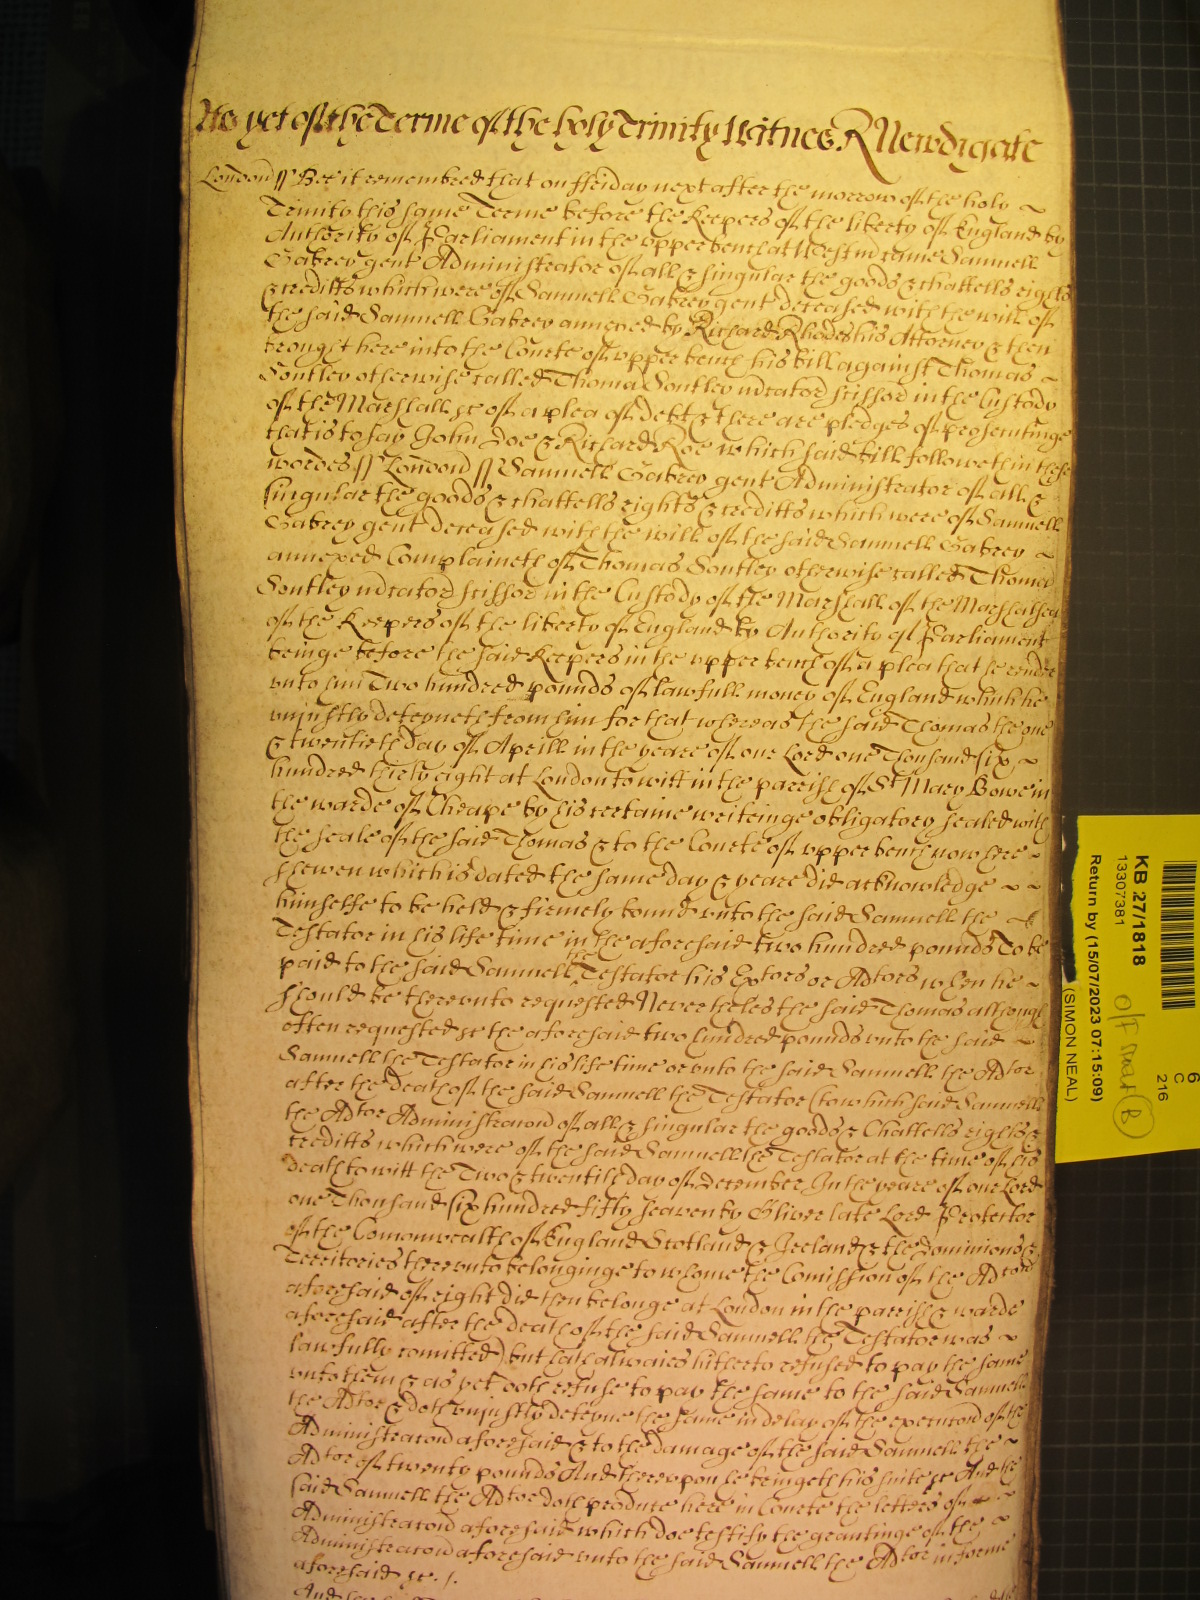 As yet of the Terme of the holy Trinity Witnes R Newdigate
London ss Bee it remembred that on ffriday next after the morrow of the holy
Trinity this same Terme before the Keepers of the liberty of England by
Authority of Parliament in the upper bench at Westm came Samuell
gent Administrator of all & singular the goods & chattells rights
& creditts which were of Samuell gent deceased with the will of
the said Samuell annexed by Richard Rhodes his Attorney & then
brought here into the Courte of upper bench his bill against Thomas
Soutley otherwise called Thomas Soutley scissor in the Custody
of the Marshall &c of a plea of debt & there are pledges of prosecutinge
that is to say John Doe & Richard Roe which said bill followeth in these
wordes ss London ss Samuell gent Administrator of all &
singular the goods & chattells rights & creditts which were of Samuell
gent deceased with the will of the said Samuell
annexed Complaineth of Thomas Soutley otherwise called Thomas
Soutley scissor in the Custody of the Marshall of the Marshalsea
of the Keepers of the liberty of England by Authority of Parliament
beinge before the said Keepers in the upper bench of a plea that he render
unto him Two hundred pounds of lawfull money of England which he
uniustly deteyneth from him for that whereas the said Thomas the one
& twentieth day of Aprill in the yeare of our Lord one Thousand six
hundred thirty eight at London to witt in the parrish of St Mary Bowe in
the warde of Cheape by his certaine writeinge obligatory sealed with
the seale of the said Thomas & to the Courte of upper bench now here
shewen which is dated the same day & yeare did acknowledge
himselfe to be held & firmely bound unto the said Samuell the
Testator in his life time in the aforesaid two hundred pounds To be
paid to the said Samuell the Testator his Extors or Adtors when he
should be thereunto requested Neverthelesse the said Thomas although
often requested &c the aforesaid two hundred pounds unto the said
Samuell the Testator in his life time or unto the said Samuell the Adtor
after the death of the said Samuell the Testator (to which said Samuell
the Adtor Administracon of all & singular the goods & Chattells rights &
creditts which were of the said Samuell the Testator at the time of his
death to witt the Two & twentith day of December In the yeare of our Lord
one Thousand six hundred fifty seaven by Oliver late Lord Protector
of the Comonwealth of England Scotland & Ireland & the Dominions &
Territories thereunto belonginge to whome the Comission of the Adcon
aforesaid of right did then belonge at London in the parrish & warde
aforesaid after the death of the said Samuell the Testator was
lawfully comitted) but hath alwaies hitherto refused to pay the same
unto them & as yet doth refuse to pay the same to the said Samuell
the Adtor & doth uniustly deteyne the same in delay of the execucon of the
Administracon aforesaid & to the damage of the said Samuell the
Adtor of twenty pounds And thereupon he bringeth his suite &c And the
said Samuell the Adtor doth produce here in Courte the letters of
Administracon aforesaid which doe testify the grantinge of the
Administracon aforesaid unto the said Samuell the Adtor in forme
aforesaid &c.
KB 27/1818
13307381
Return by (15/07/2023 07:15:09)
(SIMON NEAL)
6
C
216
Off smart B